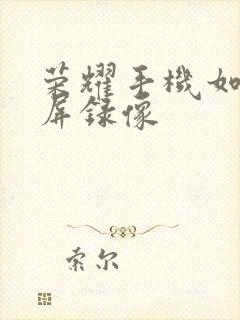 荣耀手機如
屏録像
索尔